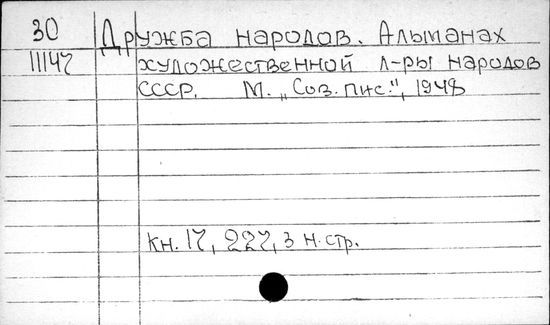 30 Дружба народов. Альманах
11147 художественной л-ры народов
СССР. М. „Сов. пис.", 1948
кн. 17, 227, 3 н. стр.